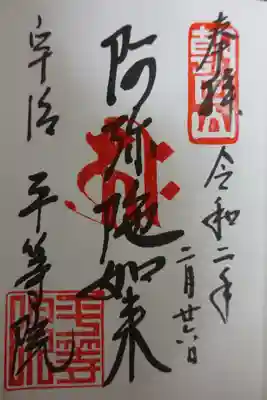 奉拝
朝日山
令和二年
二月廿六日
阿弥陀如来
宇治 平等院